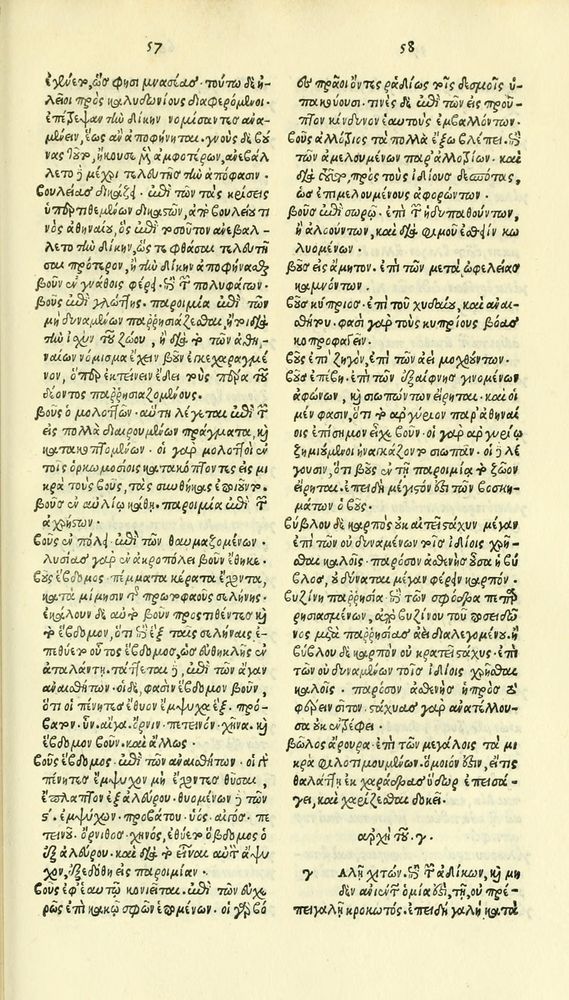 57
ἔθυεν, ὥς φησι μνασέας· τούτῳ δὲ ἠ-
λεῖοι πρὸς καλυδωνίους διαφερόμενοι.
ἐπέτρεψαν τὴν δίκην νομίσαντες ἀνα-
μένειν, ἕως ἂν ἀποφήνηται. γνοὺς δὲ
ἤκουσε ἀμφοτέρων, ἀνεβάλ
λετο μέχρι τελευτῆς τὴν ἀπόφασιν.
Βουλείας δικάζει. ἐπὶ τῶν τὰς κρίσεις
ὑπερτιθεμένων δικαστῶν, ἀπὸ βουλεία τι
νὸς ἀθηναίου, ὃς ἐπὶ τοσοῦτον ἀνεβάλ-
λετο τὴν δίκην, ὥς τε φθάσαι τελευτῆ
σαι πρότερον, ἢ τὴν δίκην ἀποφήνασθαι
βοῦν ἐν γνάθοις φέρει. ἐπὶ τῶν πολυφάγων.
βοῦς ἐπὶ γλώττης. παροιμία ἐπὶ τῶν
μὴ δυναμένων παρρησιάζεσθαι, ἤτοι διὰ
τὴν ἰσχὺν τοῦ ζώου, ἢ διὰ τὸ τῶν ἀθη-
ναίων νόμισμα ἔχειν βοῦν ἐγκεχαραγμέ
νον, ὅπερ ἐκτείνειν ἔδει τοὺς πέρα τοῦ
δέοντος παρρησιαζομένους.
βοῦς ὁ μολοττῶν. αὕτη λέγεται ἐπὶ τῶν
εἰς πολλὰ διαιρουμένων πράγματα, καὶ
κατακοπτομένων. οἱ γὰρ μολοττοὶ ἐν
τοῖς ὁρκωμοσίοις κατακόπτοντες εἰς μι
κρὰ τοὺς βοῦς, τὰς συνθήκας ἐποιοῦντο.
βοῦς ἐν αὐλίῳ κάθῃ. παροιμία ἐπὶ τῶν
ἀχρήστων.
βοῦς ἐν πόλει. ἐπὶ τῶν θαυμαζομένων.
λυσίας γὰρ ἐν ἀκροπόλει βοῦν ἔθηκε.
βοῦς ἕβδομος. πέμματα κέρατα ἔχοντα,
κατὰ μίμησιν τῆς πρωτοφαοῦς σελήνης.
ἐκάλουν δὲ αὐτὸ βοῦν προστιθέντες καὶ
τὸ ἕβδομον, ὅτι ἐπὶ ἓξ ταῖς σελήναις ἐ-
πεθύετο οὗτος ἕβδομος, ὡς εὐθηκλῆς ἐν
ἀταλάντῃ. τάττεται δὲ, ἐπὶ τῶν ἄγαν
ἀναισθήτων. οἱ δέ, φασιν ἕβδομον βοῦν,
ὅτι οἱ πένητες ἔθυον ἔμψυχα ἕξ. πρό-
βατον. ὗν. αἶγα. ὄρνιν. πετεινόν. χῆνα. καὶ
ἕβδομον βοῦν. καὶ ἄλλως.
βοῦς ἕβδομος. ἐπὶ τῶν ἀναισθήτων. οἱ γὰρ
πένητες ἔμψυχον μὴ ἔχοντες θῦσαι,
ἔπλαττον ἐξ ἀλεύρου. θυομένων δὲ τῶν
ϛ΄. ἐμψύχων. προβάτου. ὑός. αἰγός. πε
τεινοῦ. ὄρνιθος. χηνός, ἐθύετο ὁ ἕβδομος ὁ
ἐξ ἀλεύρου. καὶ διὰ τὸ εἶναι αὐτὸν ἄψυ
χον, ἐξεδόθη εἰς παροιμίαν.
βοῦς ἐφ' ἑαυτῷ κονιεῖται. ἐπὶ τῶν εὐχε
ρῶς ἐπὶ κακῷ σφῶν ἑπομένων. οἱ γὰρ βό
58
ες πρᾶοι ὄντες ῥᾳδίως τοῖς δεσμοῖς ὑ-
πακούουσι. τινὲς δὲ ἐπὶ τῶν εἰς προῦ-
πτον κίνδυνον ἑαυτοὺς ἐμβαλόντων.
βοῦς ἀλλόβιος τὰ πολλὰ ἔξω βλέπει. ἐπὶ
τῶν ἀμελουμένων παρ' ἀλλοβίων. καὶ
διὰ τοῦτο, πρὸς τοὺς ἰδίους δεσπότας,
ὡς ἐπιμελουμένους ἀφορώντων.
βοῦς ἐπὶ σωρῷ. ἐπὶ τῶν ἡδυπαθούντων,
ἢ ἀλούντων, καὶ διὰ φιμοῦ ἐσθίειν κω
λυομένων.
βοῦς εἰς ἄμητον. ἐπὶ τῶν μετὰ ὠφελείας
καμνόντων.
βοῦς κύπριος. ἐπὶ τοῦ χυδαίου, καὶ ἀναι-
σθήτου. φασὶ γὰρ τοὺς κυπρίους βόας
κοπροφαγεῖν.
βοῦς ἐπὶ ζυγόν, ἐπὶ τῶν ἀεὶ μοχθούντων.
βοῦς ἐπέβη. ἐπὶ τῶν ἐξαίφνης γινομένων
ἀφώνων, καὶ σιωπώντων εἴρηται. καὶ οἱ
μέν φασιν, ὅτι τὸ ἀργύριον παρ' ἀθηναί
οις ἐπίσημον εἶχε βοῦν. οἱ γὰρ ἀργυρίῳ
ζημιούμενοι ἠναγκάζοντο σιωπᾶν. οἱ δὲ λέ
γουσιν, ὅτι βοῦς ἐν τῇ παροιμίᾳ τὸ ζῶον
εἴρηται. ἐπειδὴ μέγιστόν ἐστι τῶν βοσκη-
μάτων ὁ βοῦς.
Βύβλου δὲ καρπὸς οὐκ αἰτεῖ στάχυν μέγαν
ἐπὶ τῶν οὐ δυναμένων τοῖς ἰδίοις χρῆ-
σθαι καλοῖς. παρόσον ἀσθενὴς οὖσα ἡ βύ
βλος, οὐ δύναται μέγαν φέρειν καρπόν.
Βυζίνη παρρησία. ἐπὶ τῶν σφόδρα πεπαρ
ρησιασμένων, ἀπὸ βυζίνου τοῦ ποσειδῶ
νος μετὰ παρρησίας ἀεὶ διαλεγομένου. ἢ
βύβλου δὲ καρπὸν οὐ κρατεῖ στάχυς. ἐπὶ
τῶν οὐ δυναμένων τοῖς ἰδίοις χρῆσθαι
καλοῖς. παρόσον ἀσθενὴς ἢ πρὸς τὸ
φέρειν σῖτον. στάχυας γὰρ ἀνατέλλου-
σα οὐκ ἐκτρέφει.
βῶλος ἄρουρα. ἐπὶ τῶν μεγάλοις τὰ μι
κρὰ φιλοτιμουμένων. ὅμοιον οὖν, εἴ τις
θαλάττῃ ἐκ χαράδρας ὕδωρ ἐπεισά-
γει, καὶ χαρίζεσθαι δοκεῖ.
ἀρχὴ τοῦ. γ.
γ αλῇ χιτών. ἐπὶ τῶν ἀδίκων, καὶ μὴ
δὲν ἀνιέντων ὁμία ἐστὶ, τῇ, οὐ πρέ-
πει γαλῇ κροκωτός. ἐπειδὴ γαλῆ κατὰ